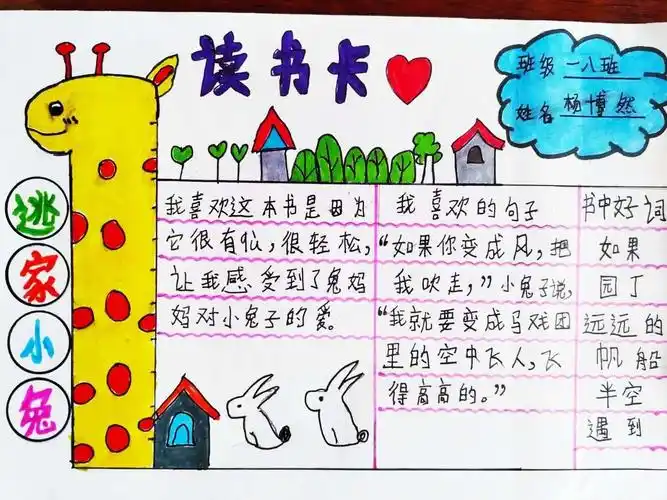 读书卡
班级 一八班
姓名 杨博然
逃家小兔
我喜欢这本书是因为
它很有仙,很轻松,
让我感受到了兔妈
妈对小兔子的爱。
我喜欢的句子
“如果你变成风,把
我吹走,”小兔子说,
“我就要变成马戏团
里的空中飞人,飞
得高高的。”
书中好词
如果
园丁
远远的
帆船
半空
遇到